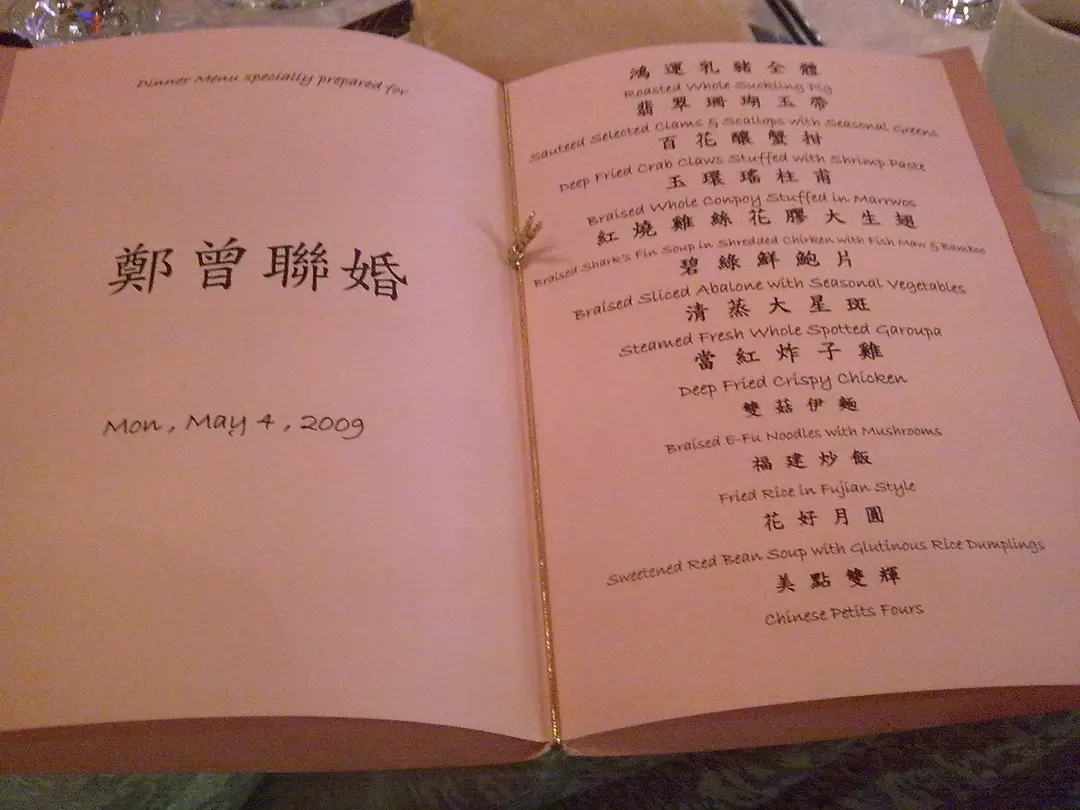 Dinner Menu specially prepared for
鄭曾聯婚
Mon, May 4, 2009
鴻運乳豬全體
Roasted Whole Suckling Pig
翡翠珊瑚玉帶
Sauteed Selected Clams & Scallops with Seasonal Greens
百花釀蟹柑
Deep Fried Crab Claws Stuffed with Shrimp Paste
玉環瑤柱甫
Braised Whole Conpoy Stuffed in Marrwos
紅燒雞絲花膠大生翅
Braised Shark's Fin Soup in Shredded Chirken with Fish Maw & Bamboo
碧綠鮮鮑片
Braised Sliced Abalone with Seasonal Vegetables
清蒸大星斑
Steamed Fresh Whole Spotted Garoupa
當紅炸子雞
Deep Fried Crispy Chicken
雙菇伊麵
Braised E-Fu Noodles with Mushrooms
福建炒飯
Fried Rice in Fujian Style
花好月圓
Sweetened Red Bean Soup with Glutinous Rice Dumplings
美點雙輝
Chinese Petits Fours